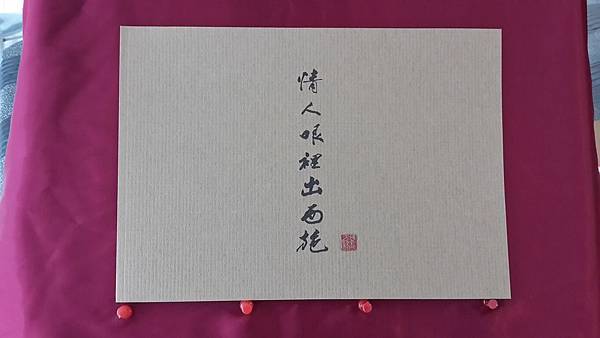 情人眼裡出西施